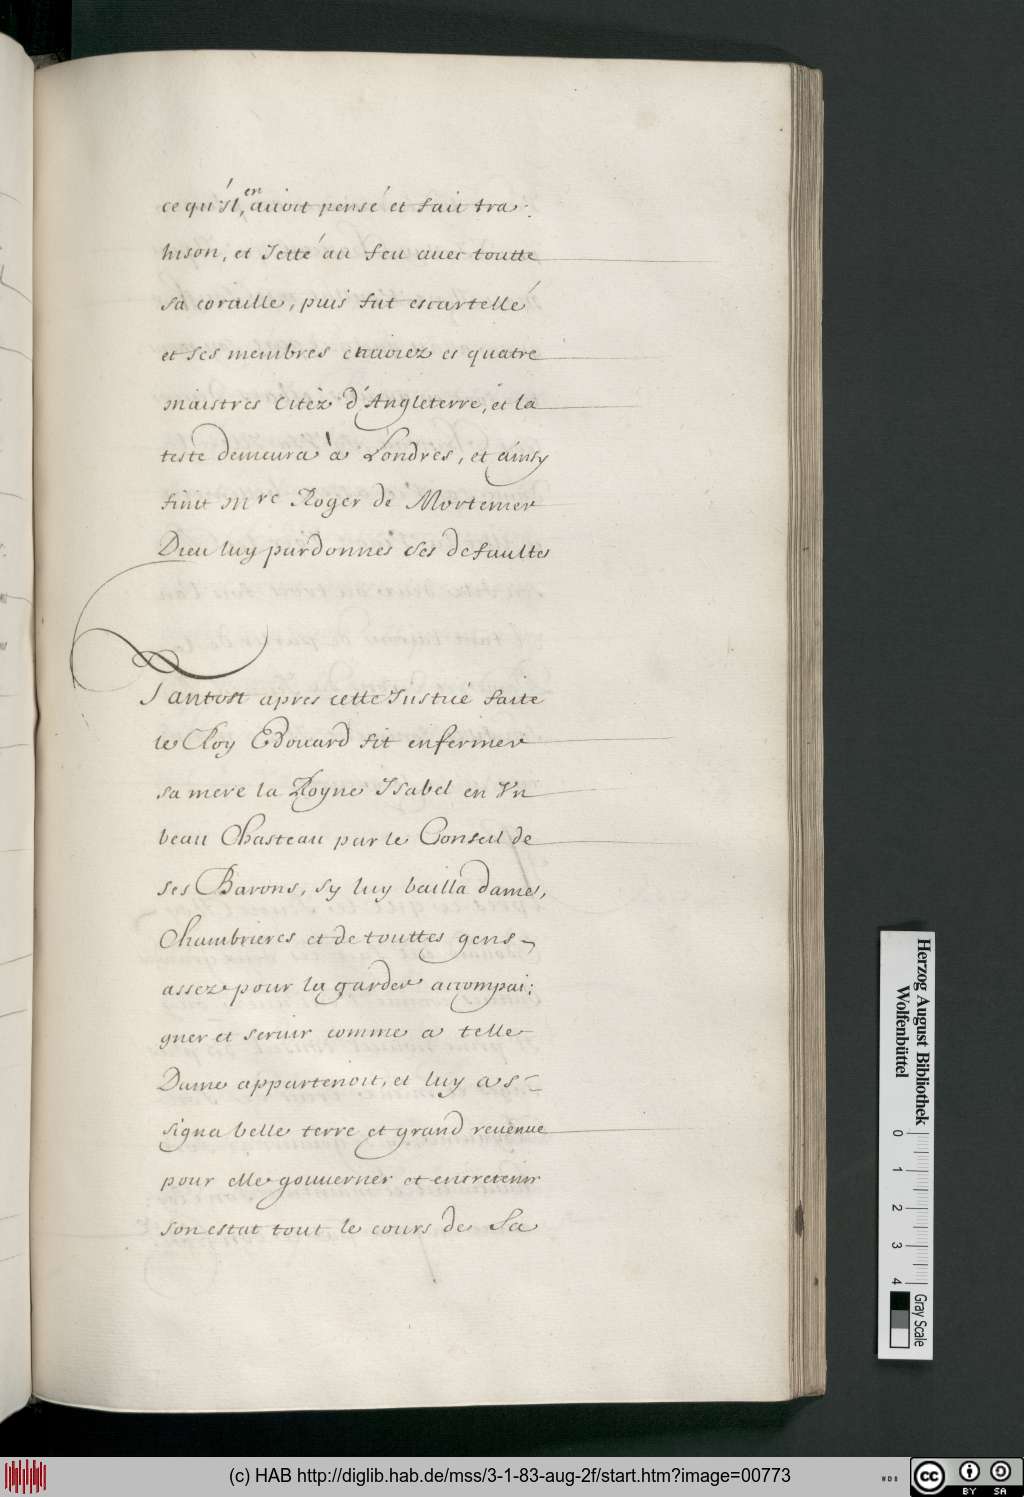 ce qu'il, en avoit pensé et fait tra-
hison, et Jetté au feu avec toutte
sa coraille, puis fut escartellé
et ses membres enuoiez es quatre
maistres Citéz d'Angleterre, et la
teste demeura à Londres, et ainsy
finit mre Roger de Mortemer
Dieu luy pardonnes ses defaultes
Tantost apres cette Justice faite
le Roy Edouard fit enfermer
sa mere la Royne Isabel en Vn
beau Chasteau par le Conseil de
ses Barons, sy luy bailla dames,
Chambrieres et de touttes gens
assez pour la garder accompai:
gner et seruir comme a telle
Dame appartenoit, et luy as-
signa belle terre et grand reuenue
pour elle gouuerner et entretenir
son estat tout le cours de Sa
Herzog August Bibliothek
Wolfenbüttel
0 1 2 3 4
Gray Scale
(c) HAB http://diglib.hab.de/mss/3-1-83-aug-2f/start.htm?image=00773
WDB
cc BY SA